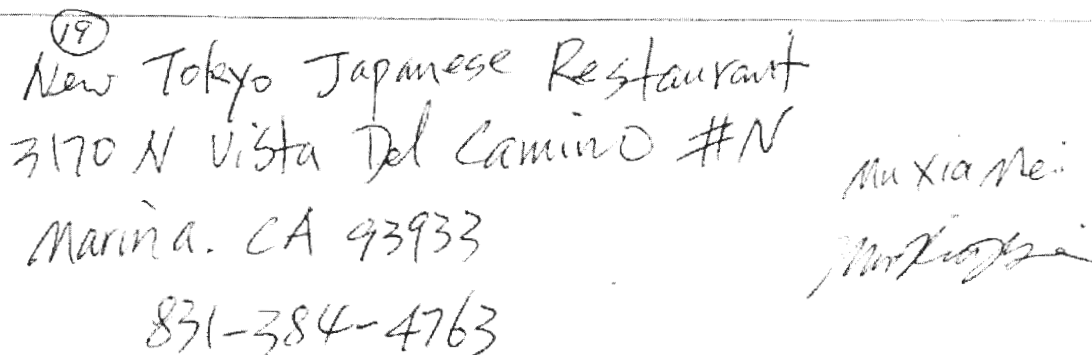 19
New Tokyo Japanese Restaurant
3170 N Vista Del Camino #N
Marina. CA 93933
831-384-4763
Mu Xia Mei